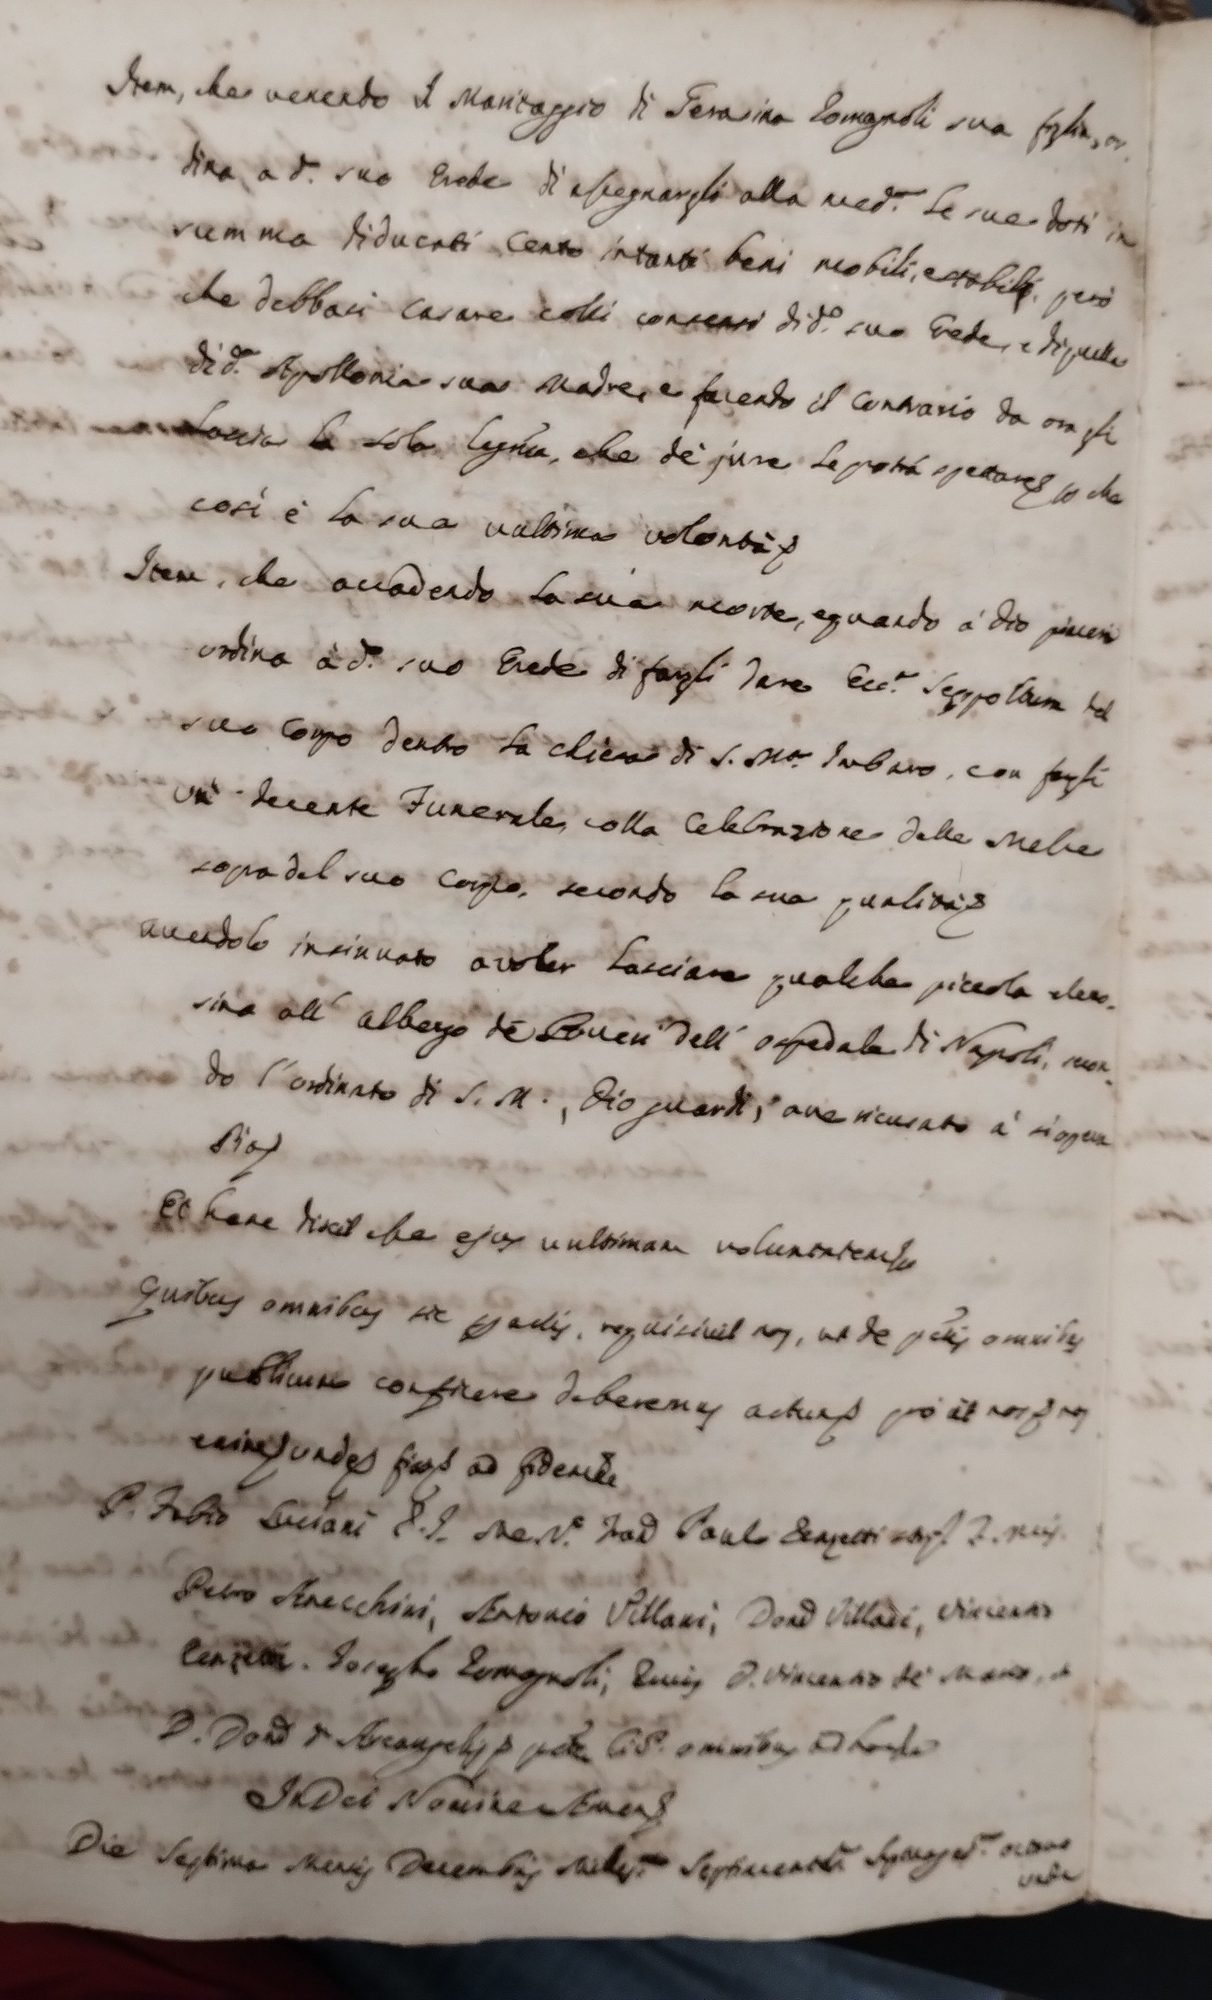 Item, che venendo il Maritaggio di Terasina Romagnoli sua figlia, or-
dina a d.º suo Erede di assegnargli alla med.ª le sue doti in
summa di ducati Cento intanti beni mobili, e stabili, però
che debbasi casare colli consensi di d.º suo Erede, e di quella
di d.ª Apollonia sua Madre, e facendo il Contrario da ora gli
lascia la sola legit.ª, che de jure le potrà spettare, che
così è la sua vultima volontà
Item, che accadendo la sua morte, e quando à Dio piacerà
ordina à d.º suo Erede di fargli dare Ecc.ª Seppoltura del
suo Corpo dentro la chiesa di S. M.ª Imbaro, con fargli
un decente Funerale, colla Celebrazione delle Messe
sopra del suo Corpo, secondo la sua qualità
avendolo insinuato a voler lasciare qualche piccola elemo-
sina all' albergo de Poveri dell' ospedale di Napoli, secon-
do l'ordinato di S. M., Dio guardi, ave ricusato à si opera
Pia
Et hanc dixit esse ejus vultimam voluntatem
Quibus omnibus sic peractis, requisivit nos, ut de p̃tis omnibus
publicum conficere deberemus actum pro ut nos
unde ad fidem
P. Fabio Luciani
Petro Anecchini, Antonio Villani, Donõ Villani, Vincenzo
Joseph Romagnoli, D. Vincenzo de
D. Donõ d'Arcangelis omnibus
In Dei Nomine Amen
Die Septima Mensis Decembris Mill.mo Septincent.mo octavo